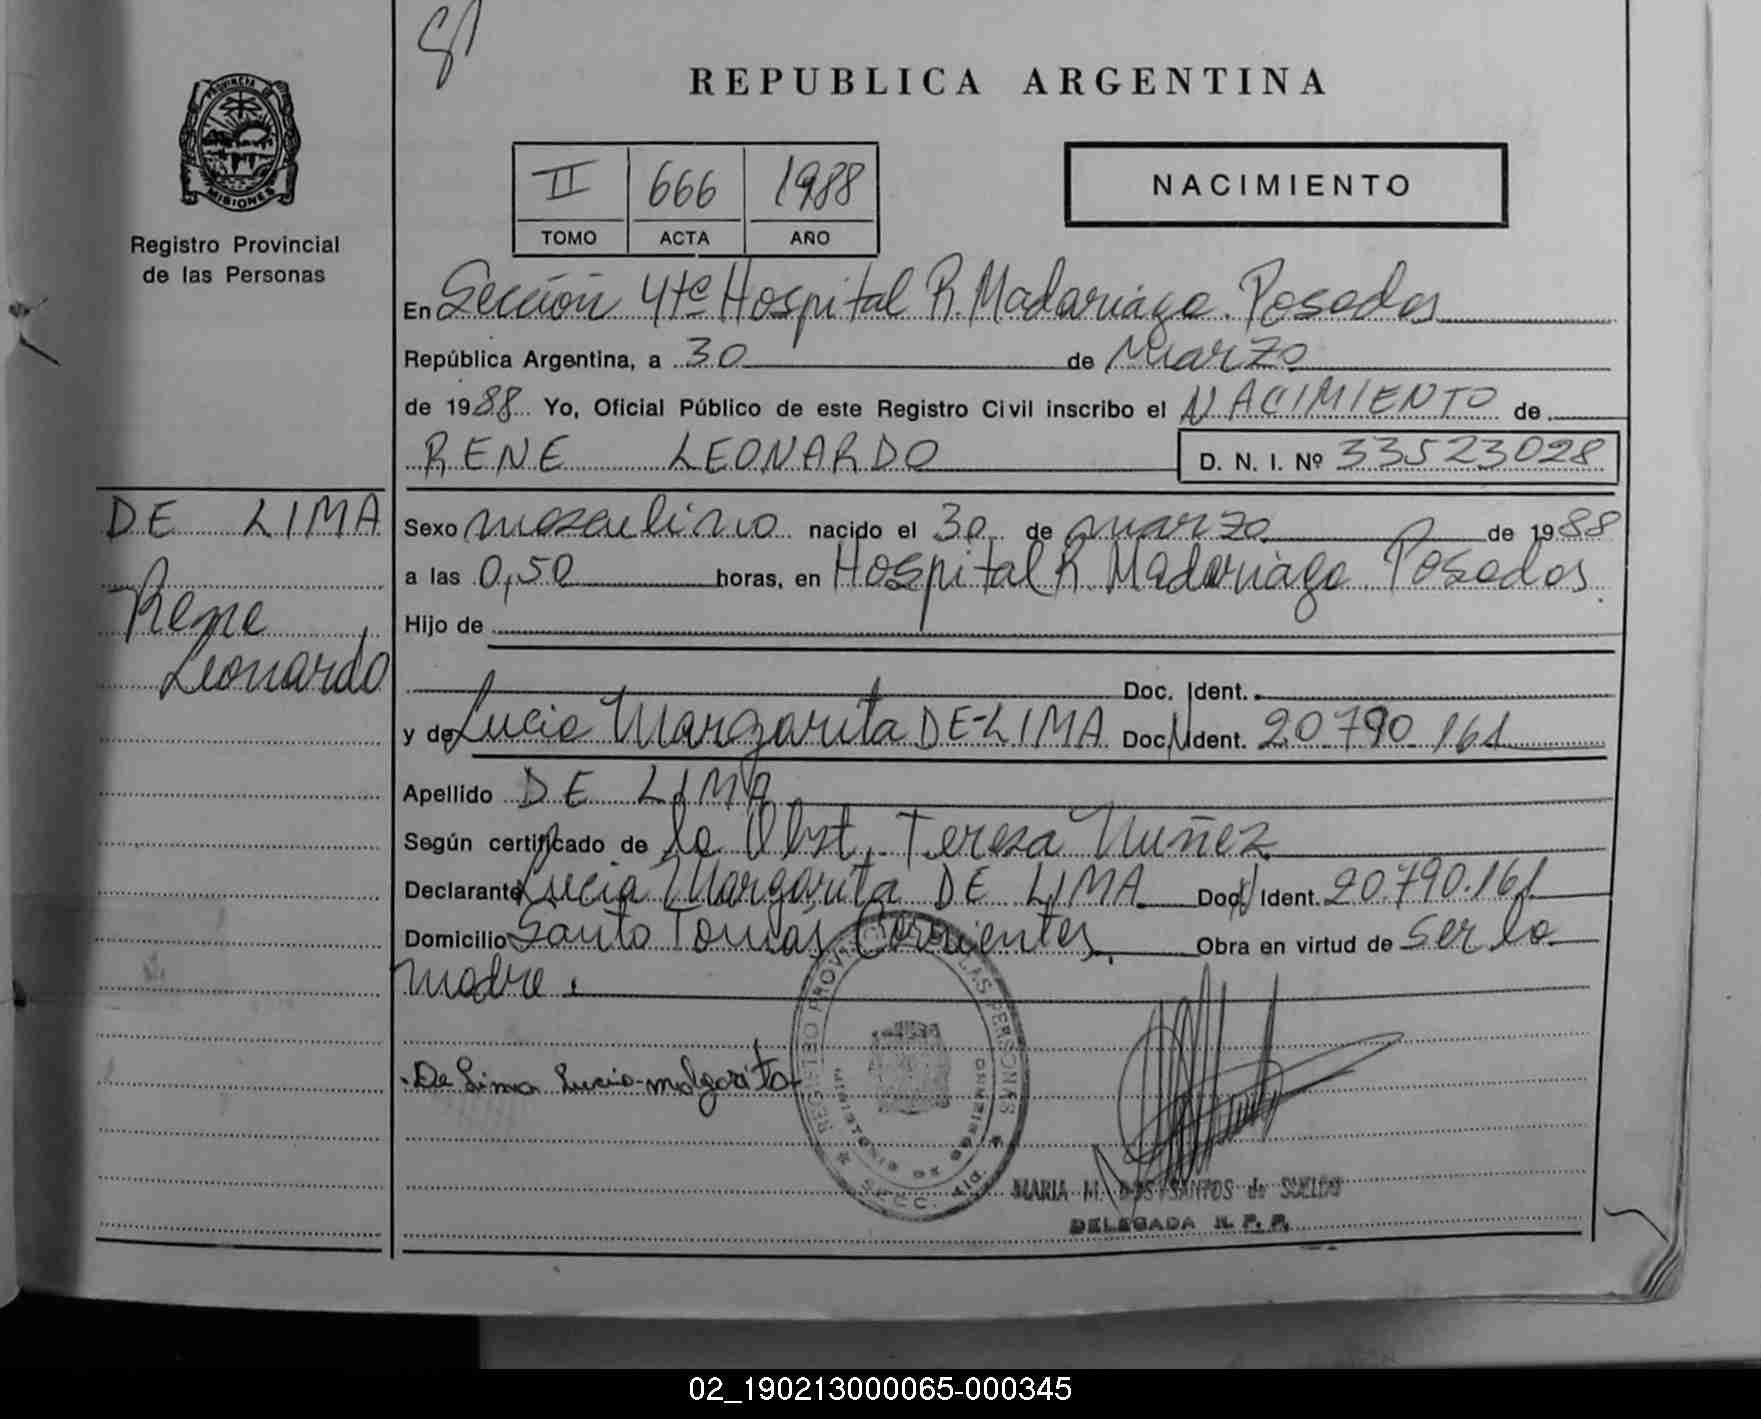 REPUBLICA ARGENTINA
PROVINCIA DE
MISIONES
Registro Provincial
de las Personas
II 666 1988
TOMO ACTA AÑO
NACIMIENTO
En Sección 4ta Hospital R. Madariaga. Posadas
República Argentina, a 30 de Marzo
de 1988 Yo, Oficial Público de este Registro Civil inscribo el NACIMIENTO de
RENE LEONARDO D. N. I. Nº 33523028
DE LIMA
Rene
Leonardo
Sexo masculino nacido el 30 de marzo de 1988
a las 0,50 horas, en Hospital R. Madariaga Posadas.
Hijo de
Doc. Ident.
y de Lucia Margarita DE-LIMA Doc. Ident. 20.790.161
Apellido DE LIMA
Según certificado de la Obst. Teresa Nuñez
Declarante Lucia Margarita DE LIMA Doc. Ident. 20.790.161
Domicilio Santo Tomás Corrientes. Obra en virtud de ser la
madre.
De Lima Lucia malgarita
REGISTRO PROVINCIAL DE LAS PERSONAS
MINISTERIO DE GOBIERNO
MARIA M. DOS SANTOS de SUELDO
DELEGADA R. P. P.
02_190213000065-000345